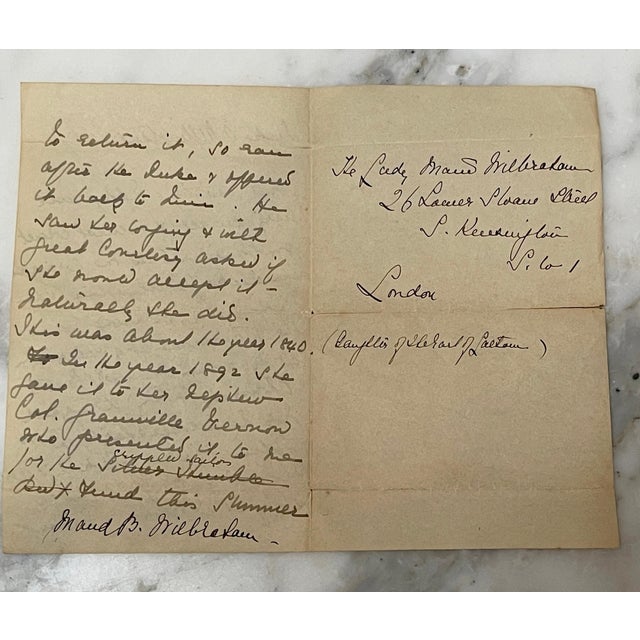 to return it, so ran
after the Duke & offered
it back to him. He
saw her crying & with
great Courtesy asked if
she would accept it -
Naturally she did.
This was about the year 1840.
In the year 1892 she
gave it to her nephew
Col. Granville Vernon
who presented it to me
crippled sailors
for the Silver Thimble
Fund this Summer
Maud B. Wilbraham -
The Lady Maud Wilbraham
26 Lower Sloane Street
S. Kensington
S.W 1
London
(Daughter of the Earl of Lathom)